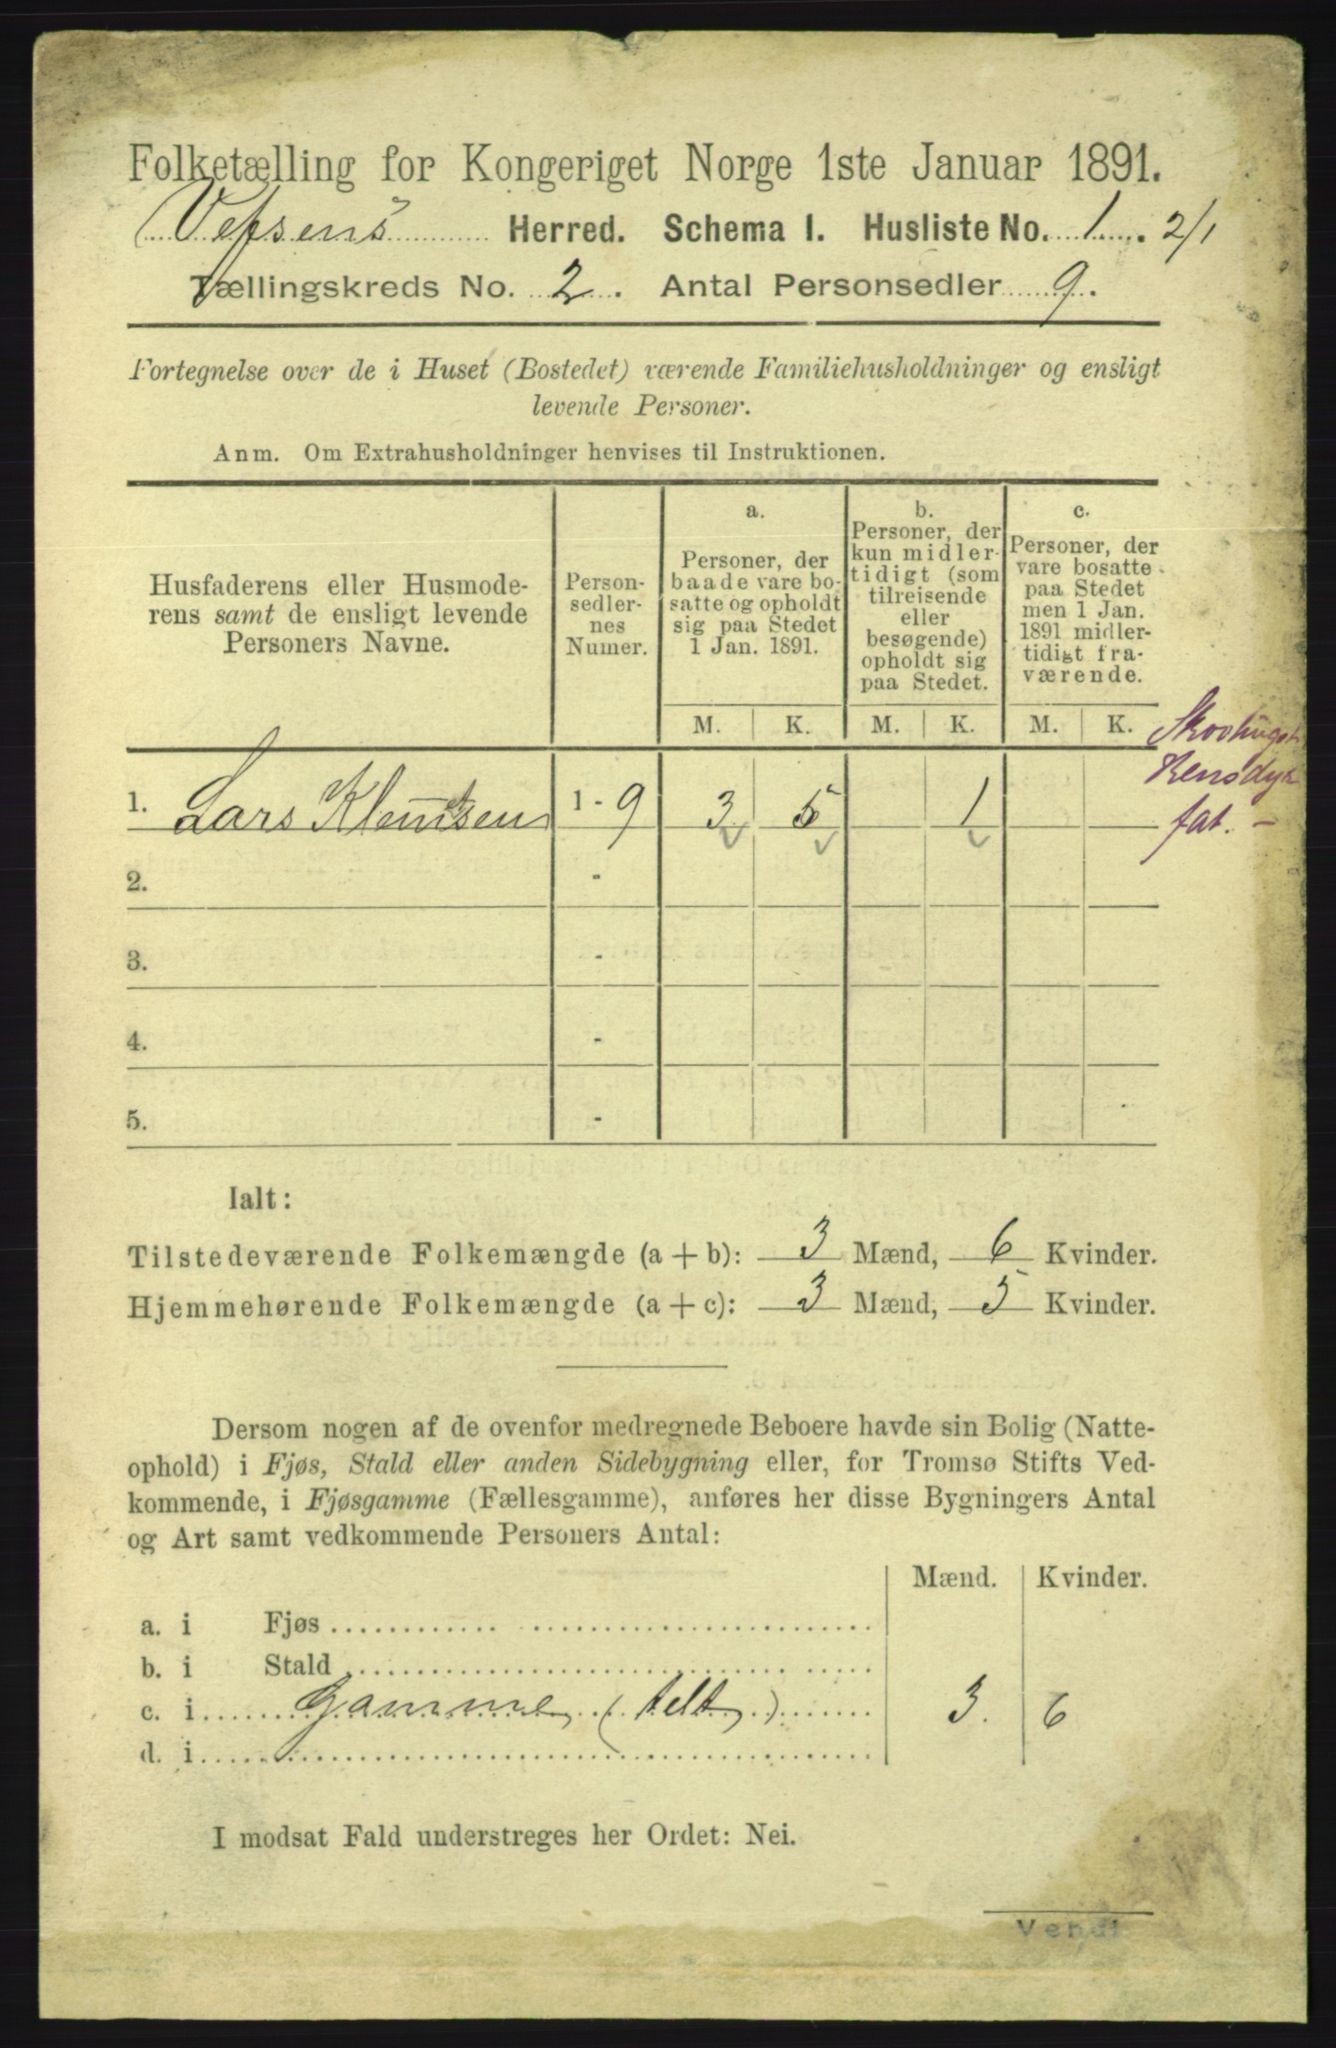 Folketælling for Kongeriget Norge 1ste Januar 1891.
Vefsens Herred. Schema I. Husliste No. 1. 2/1
Tællingskreds No. 2. Antal Personsedler 9.
Fortegnelse over de i Huset (Bostedet) værende Familiehusholdninger og ensligt
levende Personer.
Anm. Om Extrahusholdninger henvises til Instruktionen.
Husfaderens eller Husmode-
rens samt de ensligt levende
Personers Navne.
Person-
sedler-
nes
Numer.
a.
Personer, der
baade vare bo-
satte og opholdt
sig paa Stedet
1 Jan. 1891.
b.
Personer, der
kun midler-
tidigt (som
tilreisende
eller
besøgende)
opholdt sig
paa Stedet.
c.
Personer, der
vare bosatte
paa Stedet
men 1 Jan.
1891 midler-
tidigt fra-
værende.
M. K. M. K. M. K.
1. Lars Klemtsen 1 - 9 3 5 1
fat. -
2. -
3. -
4. -
5. -
Ialt:
Tilstedeværende Folkemængde (a + b): 3 Mænd, 6 Kvinder.
Hjemmehørende Folkemængde (a + c): 3 Mænd, 5 Kvinder.
Dersom nogen af de ovenfor medregnede Beboere havde sin Bolig (Natte-
ophold) i Fjøs, Stald eller anden Sidebygning eller, for Tromsø Stifts Ved-
kommende, i Fjøsgamme (Fællesgamme), anføres her disse Bygningers Antal
og Art samt vedkommende Personers Antal:
Mænd. Kvinder.
a. i Fjøs
b. i Stald
c. i Gamme (telt) 3. 6
d. i
I modsat Fald understreges her Ordet: Nei.
Vend!